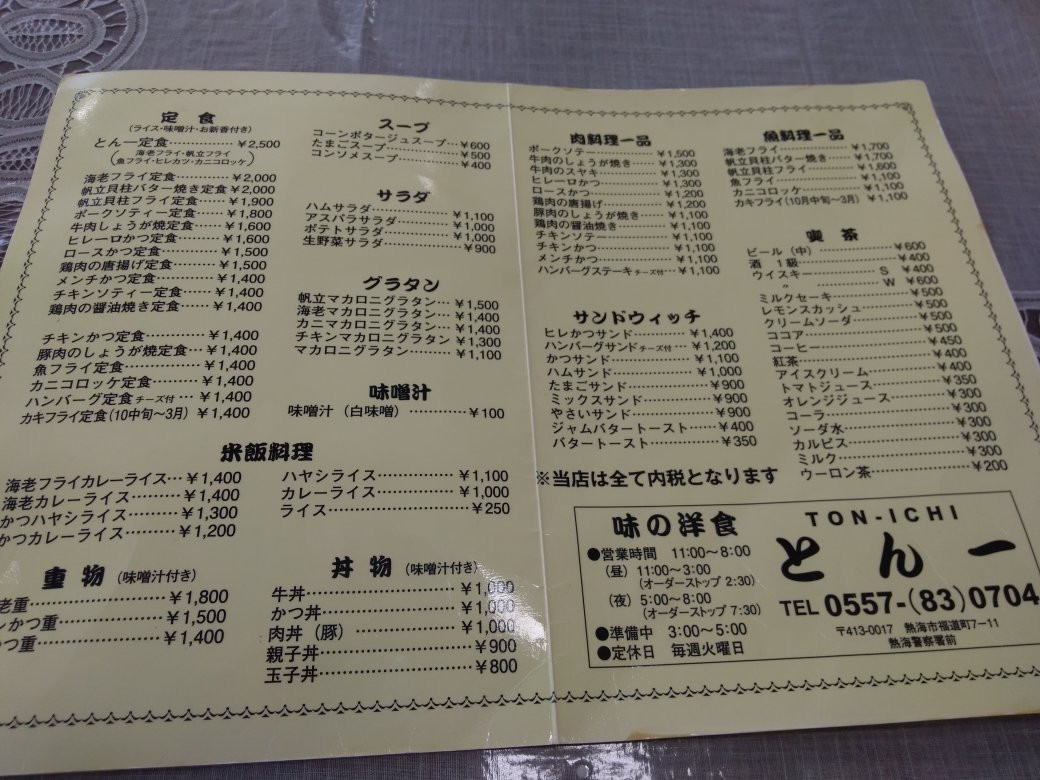 定食
(ライス・味噌汁・お新香付き)
とん一定食…………¥2,500
(海老フライ・帆立フライ
魚フライ・ヒレカツ・カニコロッケ)
海老フライ定食…………¥2,000
帆立貝柱バター焼き定食¥2,000
帆立貝柱フライ定食……¥1,900
ポークソティー定食……¥1,800
牛肉しょうが焼定食……¥1,600
ヒレーロかつ定食………¥1,600
ロースかつ定食…………¥1,500
鶏肉の唐揚げ定食………¥1,500
メンチかつ定食…………¥1,400
チキンソティー定食……¥1,400
鶏肉の醤油焼き定食……¥1,400
チキンかつ定食…………¥1,400
豚肉のしょうが焼定食…¥1,400
魚フライ定食……………¥1,400
カニコロッケ定食………¥1,400
ハンバーグ定食チーズ付…¥1,400
カキフライ定食(10中旬〜3月)¥1,400
スープ
コーンポタージュスープ…¥600
たまごスープ……………¥500
コンソメスープ…………¥400
サラダ
ハムサラダ………………¥1,100
アスパラサラダ…………¥1,000
ポテトサラダ……………¥1,000
生野菜サラダ……………¥900
グラタン
帆立マカロニグラタン…¥1,500
海老マカロニグラタン…¥1,400
カニマカロニグラタン…¥1,400
チキンマカロニグラタン…¥1,300
マカロニグラタン………¥1,100
味噌汁
味噌汁(白味噌)…………¥100
米飯料理
海老フライカレーライス…¥1,400
海老カレーライス………¥1,400
かつハヤシライス………¥1,300
かつカレーライス………¥1,200
ハヤシライス……………¥1,100
カレーライス……………¥1,000
ライス……………………¥250
重物(味噌汁付き)
老重………………………¥1,800
かつ重……………………¥1,500
つ重………………………¥1,400
丼物(味噌汁付き)
牛丼………………………¥1,000
かつ丼……………………¥1,000
肉丼(豚)…………………¥1,000
親子丼……………………¥900
玉子丼……………………¥800
肉料理一品
ポークソテー……………¥1,500
牛肉のしょうが焼き……¥1,300
牛肉のスヤキ……………¥1,300
ヒレーロかつ……………¥1,300
ロースかつ………………¥1,200
鶏肉の唐揚げ……………¥1,200
豚肉のしょうが焼き……¥1,100
鶏肉の醤油焼き…………¥1,100
チキンソテー……………¥1,100
チキンかつ………………¥1,100
メンチかつ………………¥1,100
ハンバーグステーキチーズ付…¥1,100
サンドウィッチ
ヒレかつサンド…………¥1,400
ハンバーグサンドチーズ付…¥1,200
かつサンド………………¥1,100
ハムサンド………………¥1,000
たまごサンド……………¥900
ミックスサンド…………¥900
やさいサンド……………¥900
ジャムバタートースト…¥400
バタートースト…………¥350
※当店は全て内税となります
魚料理一品
海老フライ………………¥1,700
帆立貝柱バター焼き……¥1,700
帆立貝柱フライ…………¥1,600
魚フライ…………………¥1,100
カニコロッケ……………¥1,100
カキフライ(10月中旬〜3月)¥1,100
喫茶
ビール(中)………………¥600
酒 1級……………………¥400
ウイスキー…………S ¥400
〃 …………W ¥600
ミルクセーキ……………¥500
レモンスカッシュ………¥500
クリームソーダ…………¥500
ココア……………………¥500
コーヒー…………………¥450
紅茶………………………¥400
アイスクリーム…………¥400
トマトジュース…………¥350
オレンジジュース………¥300
コーラ……………………¥300
ソーダ水…………………¥300
カルピス…………………¥300
ミルク……………………¥300
ウーロン茶………………¥200
味の洋食
●営業時間 11:00〜8:00
(昼) 11:00〜3:00
(オーダーストップ 2:30)
(夜) 5:00〜8:00
(オーダーストップ 7:30)
●準備中 3:00〜5:00
●定休日 毎週火曜日
TON-ICHI
とん一
TEL 0557-(83)0704
〒413-0017 熱海市福道町7−11
熱海警察署前